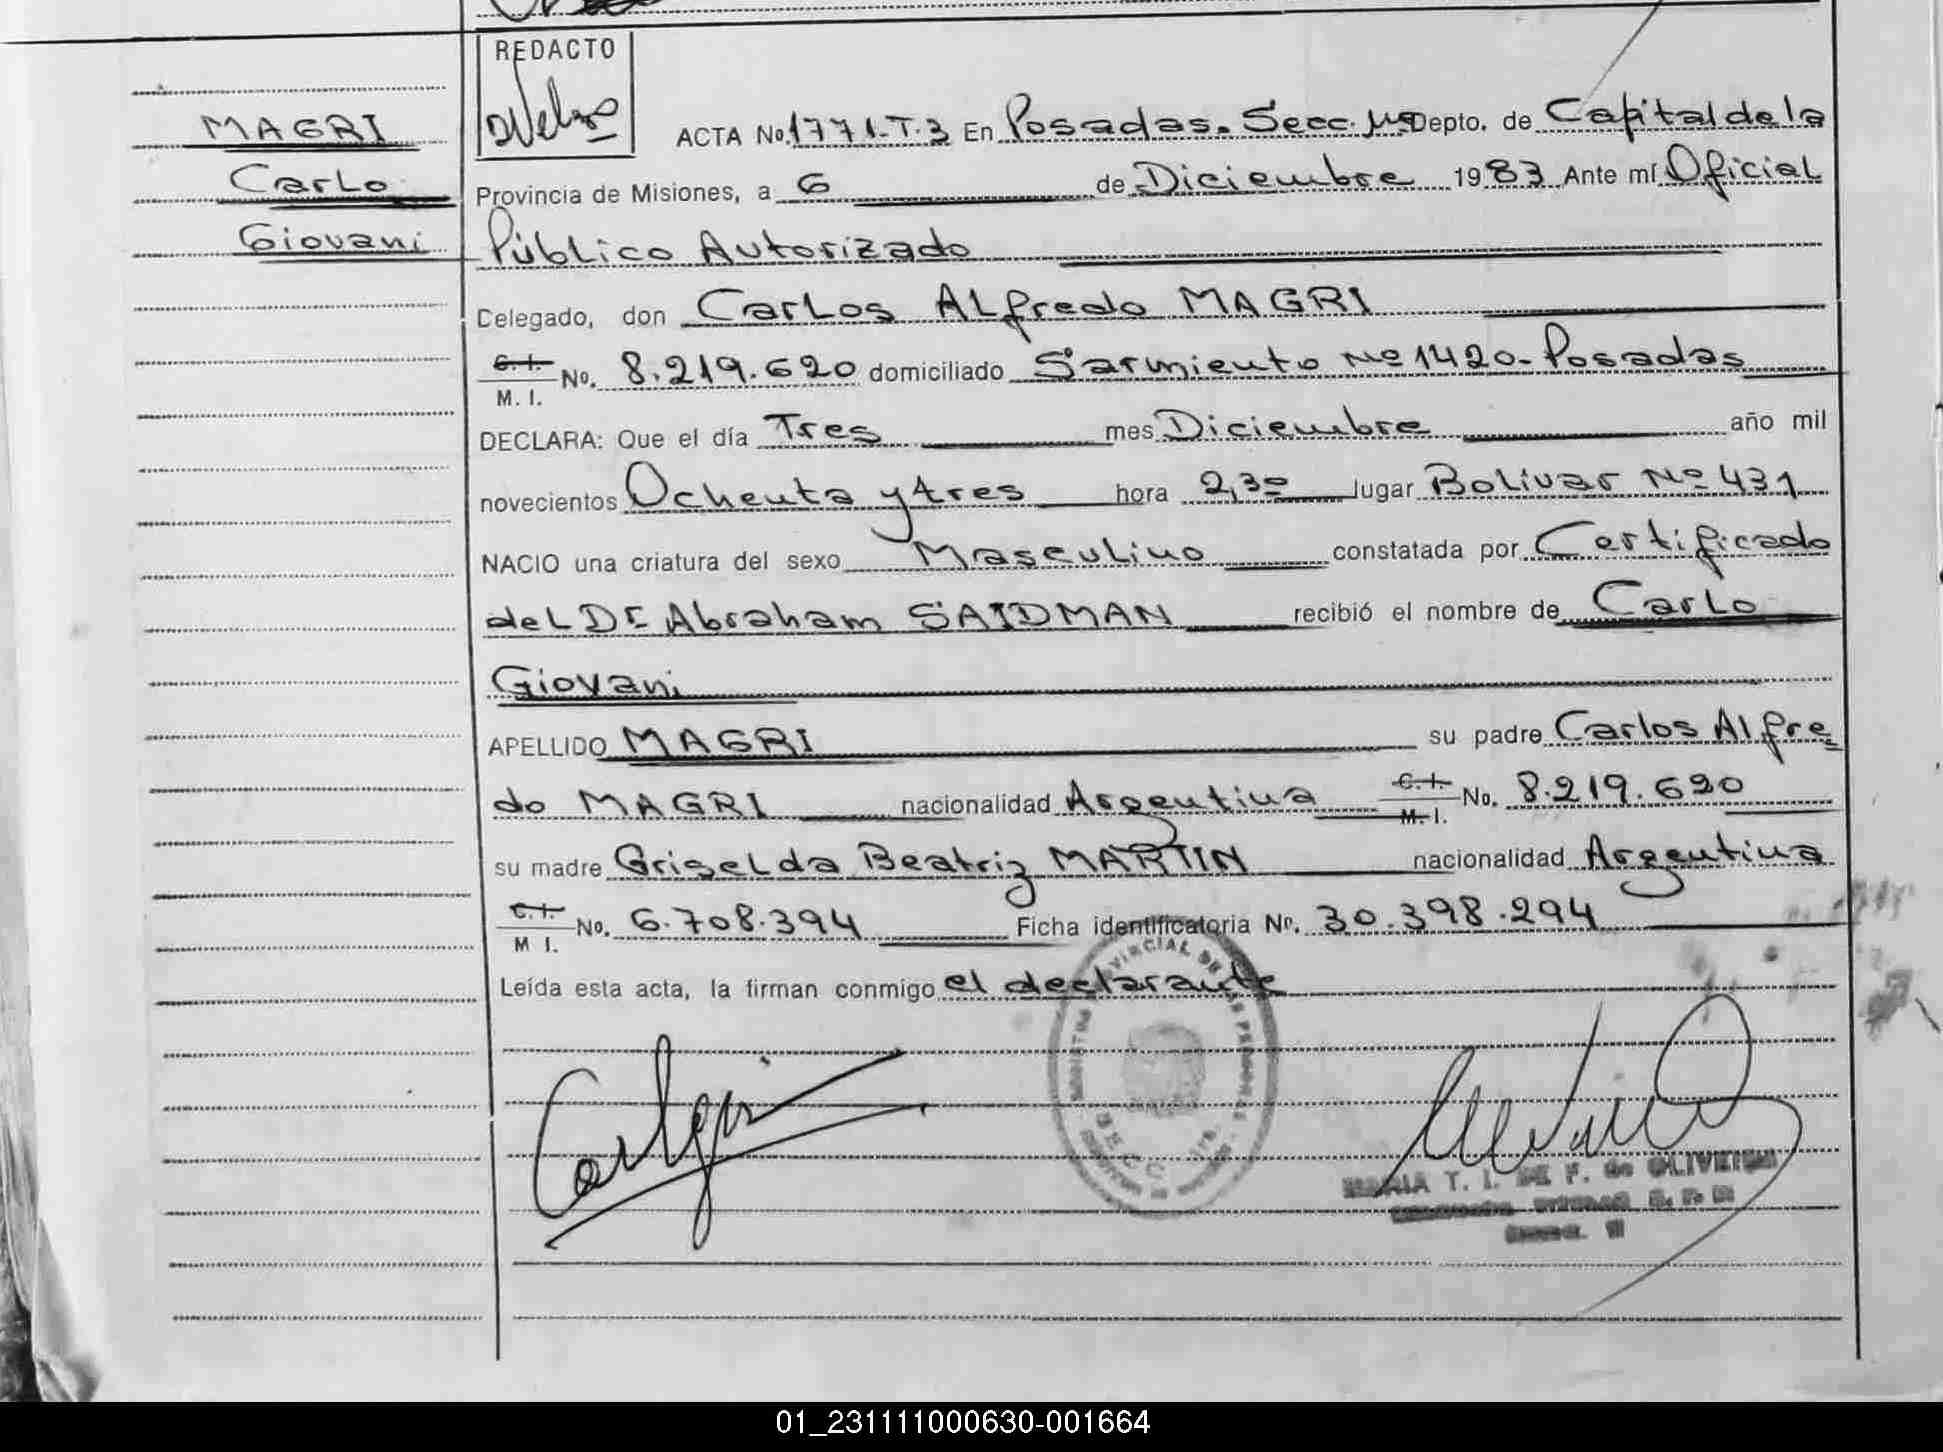 REDACTO
MAGRI
Carlo
Giovani
ACTA No. 1771-T.3 En Posadas. Secc. Depto. de Capital de la
Provincia de Misiones, a 6 de Diciembre 1983 Ante mí Oficial
Público Autorizado
Celegado, don Carlos Alfredo MAGRI
C.I.
M. I. No. 8.219.620 domiciliado Sarmiento Nº 1420-Posadas
DECLARA: Que el día Tres mes Diciembre año mil
novecientos Ochenta y tres hora 2,30 lugar Bolivar Nº 431
NACIO una criatura del sexo Masculino constatada por Certificado
del Dr Abraham SAIDMAN recibió el nombre de Carlo
Giovani
APELLIDO MAGRI su padre Carlos Alfre
do MAGRI nacionalidad Argentina C.I. M.I. No. 8.219.620
su madre Griselda Beatriz MARTIN nacionalidad Argentina
C.I.
M I. No. 6.708.394 Ficha identificatoria Nº. 30.398.294
Leída esta acta, la firman conmigo el declarante
MARIA T. I. DE F. de OLIVEIRA
01_231111000630-001664